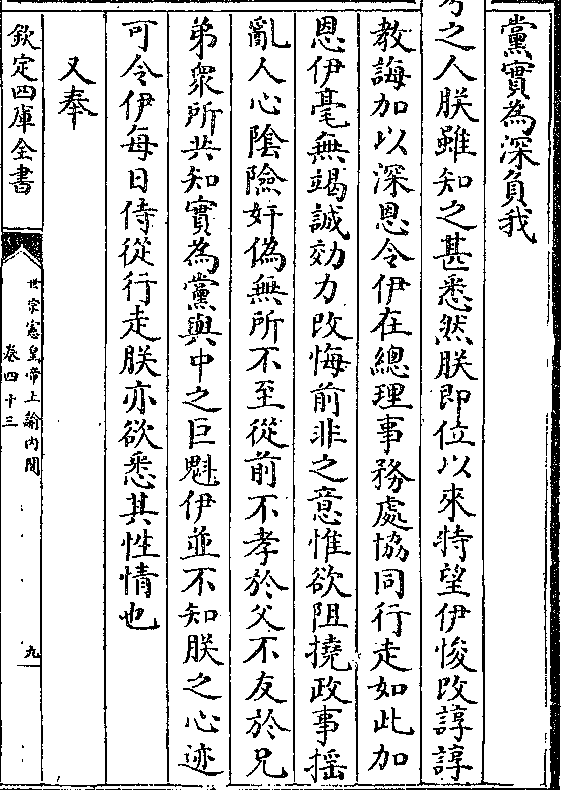 黨實為深負我
之人朕雖知之甚悉然朕即位以來特望伊悛改諄諄
教誨加以深恩令伊在總理事務處協同行走如此加
恩伊毫無竭誠効力改悔前非之意惟欲阻撓政事搖
亂人心陰險奸偽無所不至從前不孝於父不友於兄
弟衆所共知實為黨與中之巨魁伊並不知朕之心迹
可令伊每日侍從行走朕亦欲悉其性情也
又奉
欽定四庫全書
世宗憲皇帝上諭内閣
卷四十三
九